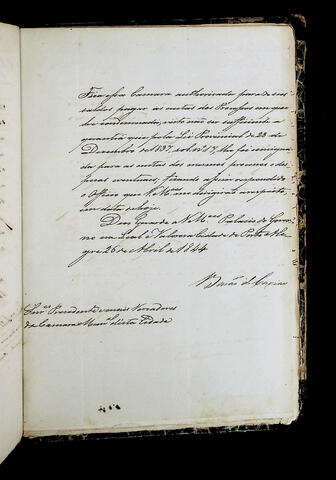 Fica essa Camara authorisada para de seus
saldos pagar as custas dos Processos em que
for condemnada, visto não ser sufficiente a
quantia que pela Lei Provincial de 23 de
Dezembro de 1837, sob nº 13, lhe foi consigna
da para as custas dos mesmos processos e des
pesas eventuaes, ficando assim respondido
o Officio que V. Mces me dirigirão a respeito
em data de hoje.
Deos Guarde a V. Mces Palacio do Gover
no na Leal e Valorosa Cidade de Porto Ale
gre 26 de Abril de 1844
Barão de Caxias
Senres Presidente e mais Vereadores
da Camara Munal desta Cidade